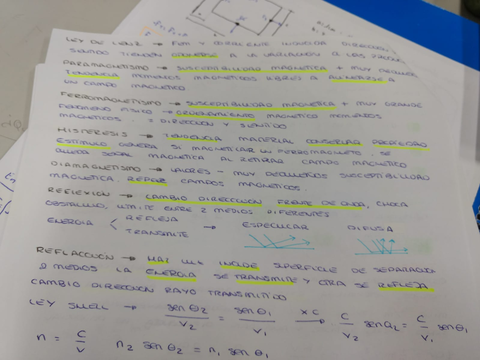 LEY DE LENZ → FEM Y CORRIENTE INDUCIDA DIRECCION Y
SENTIDO TIENDEN OPONERSE A LA VARIACION
PARAMAGNETISMO → SUSCEPTIBILIDAD MAGNETICA + MUY PEQUEÑA
TENDENCIA MOMENTOS MAGNETICOS LIBRES A ALINEARSE A
UN CAMPO MAGNETICO
FERROMAGNETISMO → SUSCEPTIBILIDAD MAGNETICA + MUY GRANDE
FENOMENO FISICO → ORDENAMIENTO MAGNETICO MOMENTOS
MAGNETICOS = DIRECCION Y SENTIDO
HISTERESIS → TENDENCIA MATERIAL CONSERVAR PROPIEDAD
ESTIMULO GENERA SI MAGNETIZAR UN FERROMAGNETO SE
QUEDA SEÑAL MAGNETICA AL RETIRAR CAMPO MAGNETICO
DIAMAGNETISMO → VALORES - MUY PEQUEÑOS SUSCEPTIBILIDAD
MAGNETICA REPELE CAMPOS MAGNETICOS.
REFLEXION → CAMBIO DIRECCION FRENTE DE ONDA, CHOCA
OBSTACULO, LIMITE ENTRE 2 MEDIOS DIFERENTES
ENERGIA < REFLEJA → ESPECULAR DIFUSA
TRANSMITE
REFLACCION → HAZ LUZ INCIDE SUPERFICIE DE SEPARACION
2 MEDIOS LA ENERGIA SE TRANSMITE Y OTRA SE REFLEJA
CAMBIO DIRECCION RAYO TRANSMITIDO
LEY SNELL → sen θ2 / V2 = sen θ1 / V1 x C → C / V2 sen θ2 = C / V1 sen θ1
n = C / V n2 sen θ2 = n1 sen θ1